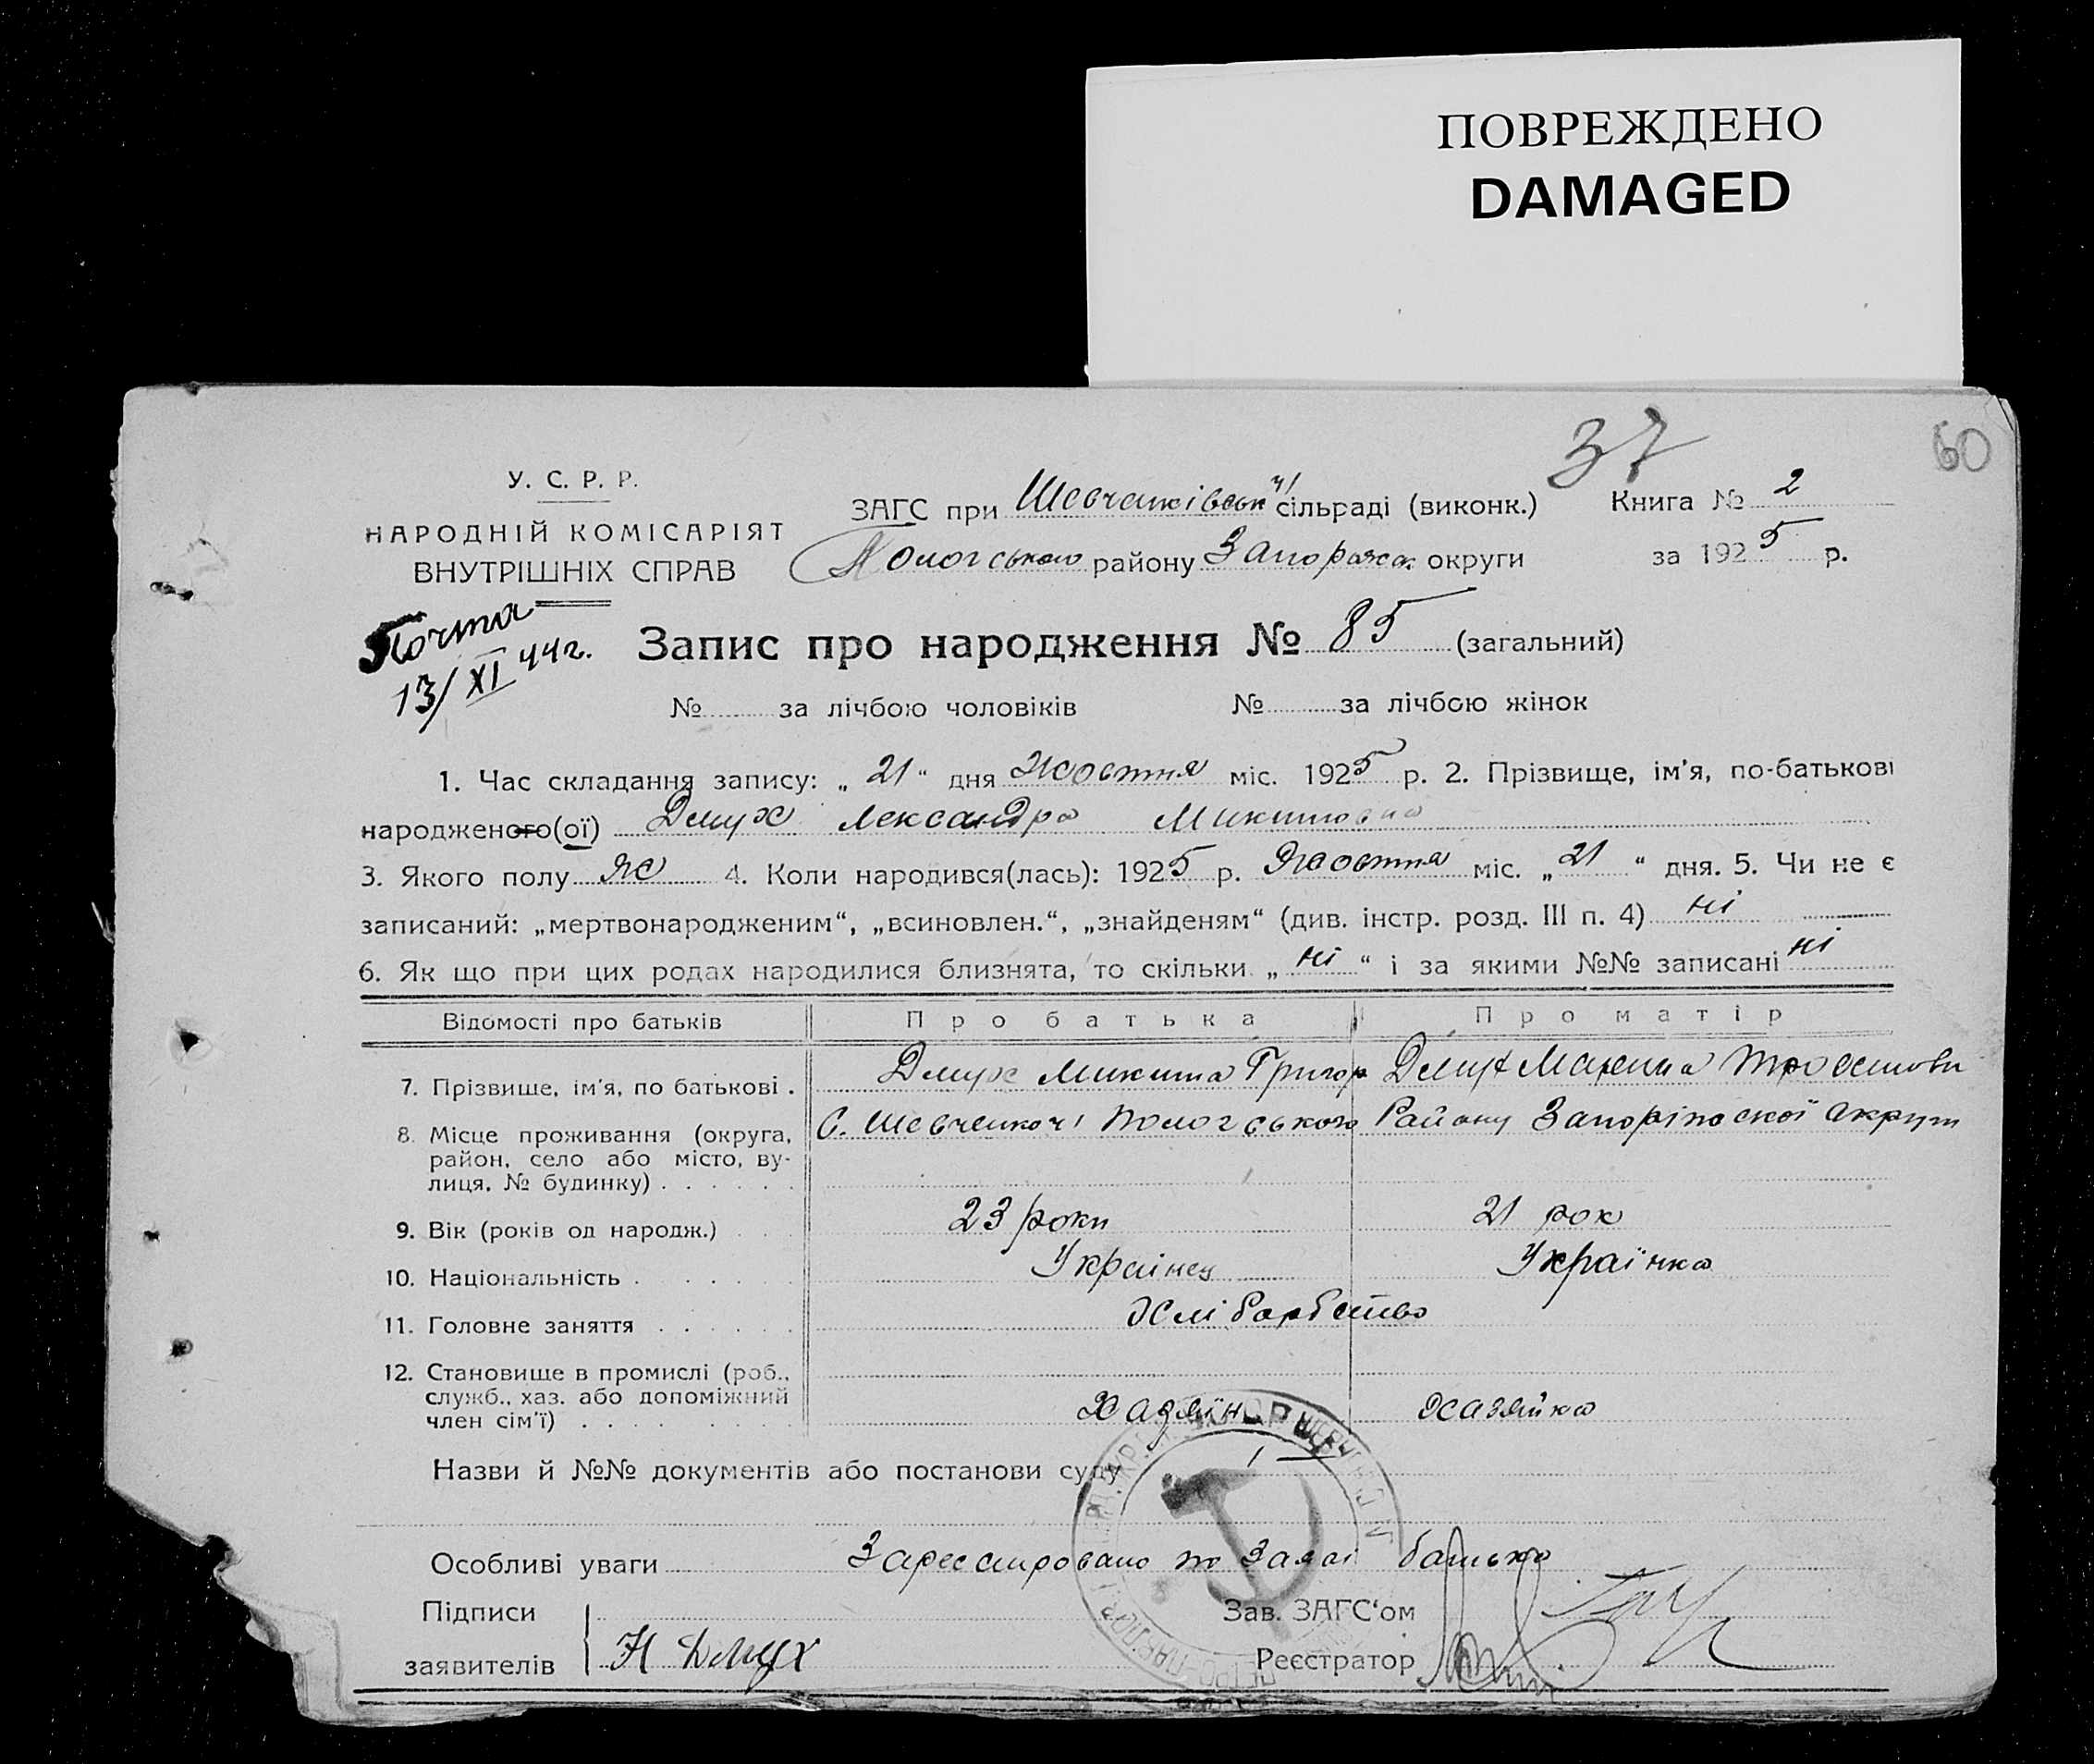 ПОВРЕЖДЕНО
DAMAGED
37
60
У. С. Р. Р.
НАРОДНІЙ КОМІСАРІЯТ
ВНУТРІШНІХ СПРАВ
ЗАГС при Шевченківськ сільраді (виконк.) Книга № 2
Пологського району Запорожск округи за 1925 р.
Почта
13/XI 44г.
Запис про народження № 85 (загальний)
№ за лічбою чоловіків № за лічбою жінок
1. Час складання запису: „ 21 “ дня Жовтня міс. 1925 р. 2. Прізвище, ім'я, по-батькові
народженого(ої) Дмух Лександра Микитовна
3. Якого полу Ж 4. Коли народився(лась): 1925 р. Жовтня міс. „ 21 “ дня. 5. Чи не є
записаний: „мертвонародженим“, „всиновлен.“, „знайденям“ (див. інстр. розд. III п. 4) ні
6. Як що при цих родах народилися близнята, то скільки „ ні “ і за якими №№ записані ні
Відомості про батьків Про батька Про матір
7. Прізвище, ім'я, по батькові . Дмух Микита Григор Дмух
8. Місце проживання (округа, район, село або місто, ву-
лиця, № будинку) . . . . . . С. Пологського Району округи
9. Вік (років од народж.) . . . 23 роки 21 рок
10. Національність . . . . . . Украінец Українка
11. Головне заняття . . . . . . Хліборбство
12. Становище в промислі (роб.,
служб., хаз. або допоміжний
член сім'ї) . . . . . . . Хазяїн Хазяйка
Назви й №№ документів або постанови суду
Особливі уваги по Заяві батька
Підписи Зав. ЗАГС'ом
заявителів Н Дмух Реєстратор